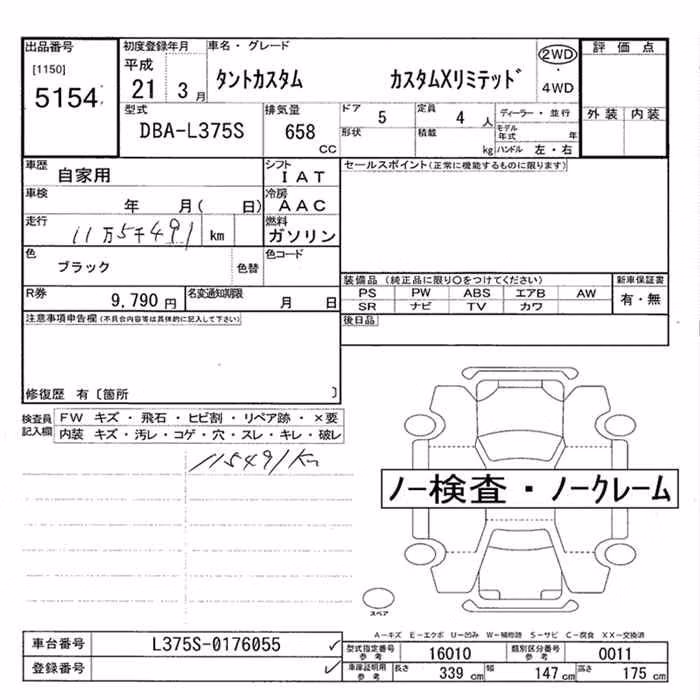 出品番号
[1150]
5154
初度登録年月
平成
21 3 月
車名・グレード
タントカスタム カスタムXリミテッド
2WD
・
4WD
評価点
外装 内装
型式
DBA-L375S
排気量
658
CC
ドア
5
定員
4 人
形状
積載
kg
ディーラー・並行
モデル年式 年
ハンドル 左・右
車歴
自家用
シフト
IAT
セールスポイント(正常に機能するものに限ります)
車検
年 月( 日)
冷房
AAC
走行
11万5千491 km
燃料
ガソリン
色
ブラック
色替
色コード
R券
9,790 円
名変通知期限
月 日
装備品 (純正品に限り○をつけてください)
PS PW ABS エアB AW
SR ナビ TV カワ
新車保証書
有・無
後日品
注意事項申告欄(不具合内容等は具体的に記入して下さい)
修復歴 有〔箇所 〕
検査員記入欄
FW キズ・飛石・ヒビ割・リペア跡・×要
内装 キズ・汚レ・コゲ・穴・スレ・キレ・破レ
115491Km
ノー検査・ノークレーム
スペア
A-キズ E-エクボ U-凹み W-補修跡 S-サビ C-腐食 XX-交換済
車台番号
L375S-0176055 ✓
登録番号
✓
型式指定番号参考
16010
類別区分番号参考
0011
車庫証明用参考
長さ 339 cm 幅 147 cm 高さ 175 cm